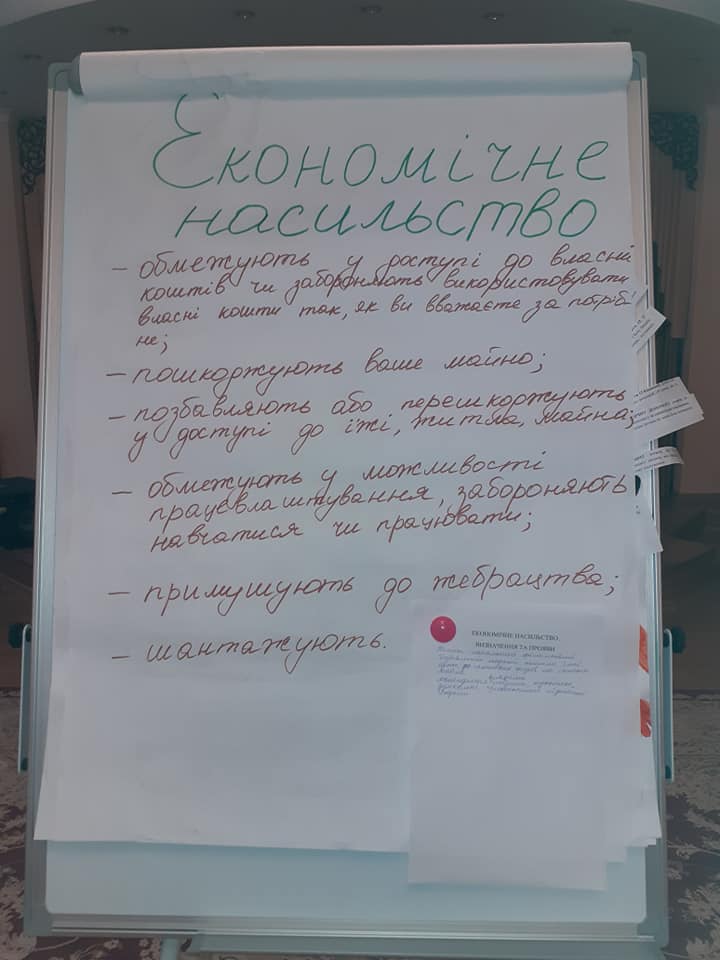 Економічне
насильство
– обмежують у доступі до власних
коштів чи забороняють використовувати
власні кошти так, як ви вважаєте за потріб-
не;
– пошкоджують ваше майно;
– позбавляють або перешкоджують
у доступі до їжі, житла, майна;
– обмежують у можливості
працевлаштування, забороняють
навчатися чи працювати;
– примушують до жебрацтва;
– шантажують.
ЕКОНОМІЧНЕ НАСИЛЬСТВО.
ВИЗНАЧЕННЯ ТА ПРОЯВИ